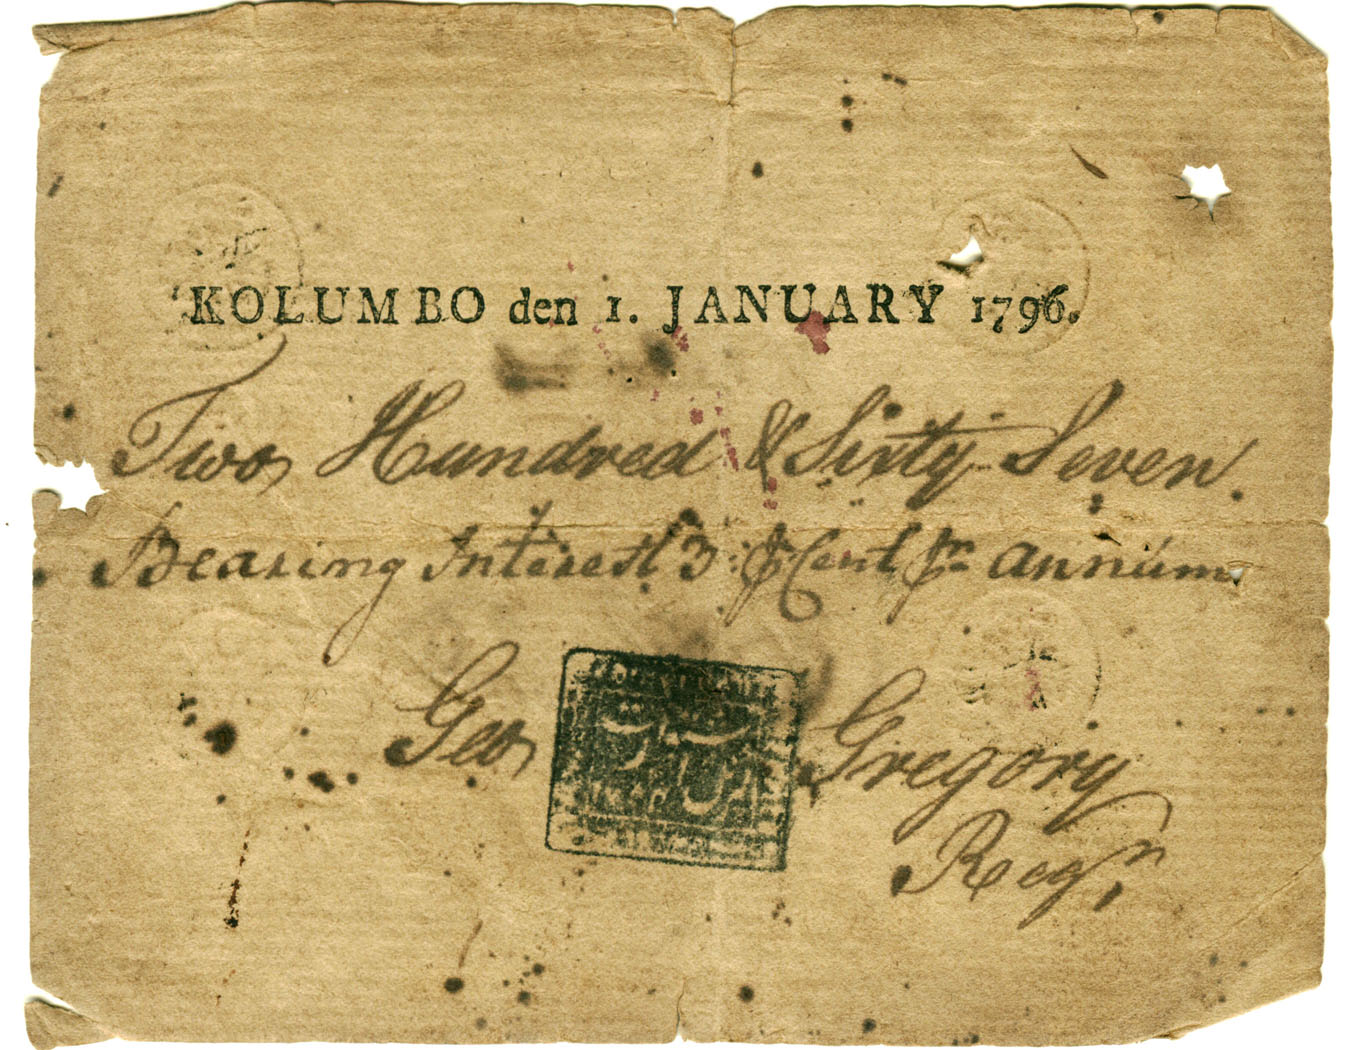 KOLUMBO den 1. JANUARY 1796.
Two Hundred & Sixty Seven.
Bearing Interest 3 ⅌ Cent ⅌r annum
Geo Gregory
Regr